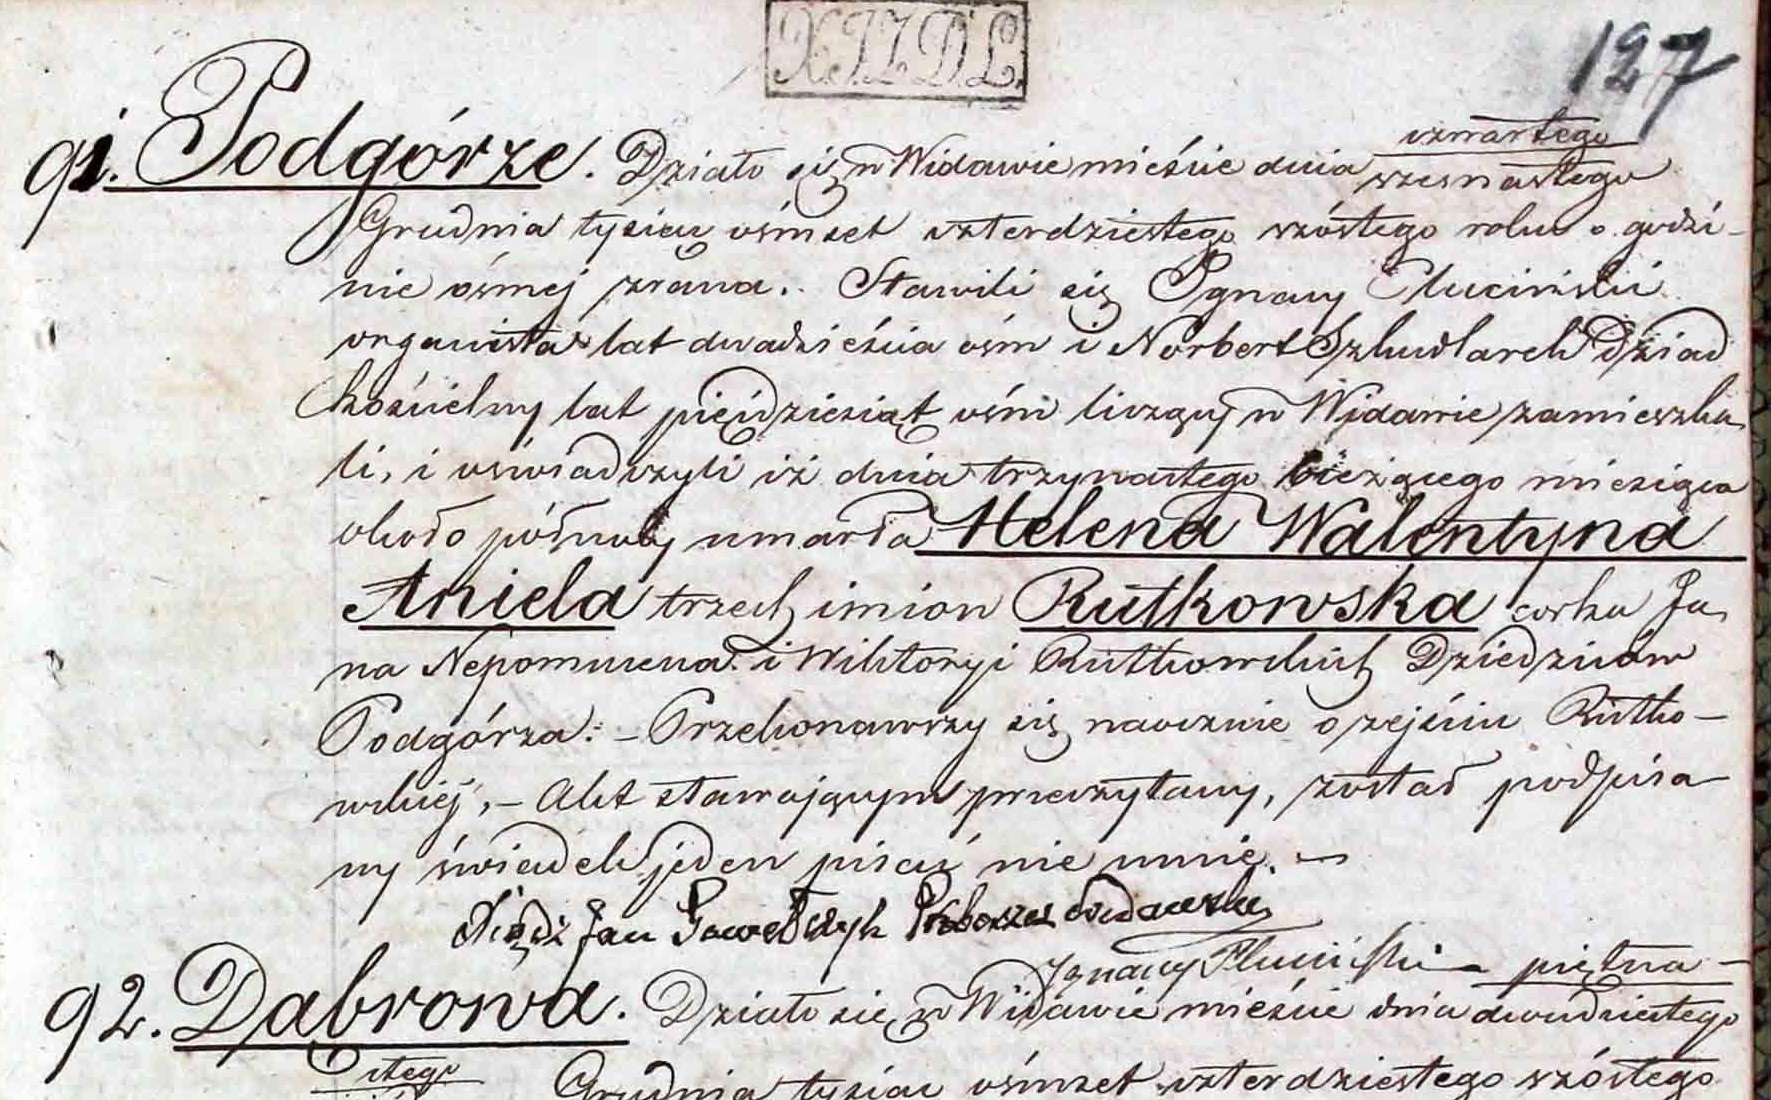 X.J.Z.D.L.
127
91. Podgórze. Działo się w Widawie mieście dnia czwartego
szesnastego
Grudnia tysiąc ośmset czterdziestego szóstego roku o godzi-
nie ósmej zrana. Stawili się Ignacy Pluciński
organista lat dwadzieścia ośm i Norbert Szkudlarek Dziad
kościelny lat pięćdziesiąt ośm liczący w Widawie zamieszka
li, i oświadczyli iż dnia trzynastego bieżącego miesiąca
około północy umarła Helena Walentyna
Aniela trzech imion Rutkowska corka Ja
na Nepomucena i Wiktoryi Rutkowskich Dziedziców
Podgórza. – Przekonawszy się naocznie o zejściu Rutko-
wskiej, – Akt stawającym przeczytany, został podpisa-
ny świadek jeden pisać nie umie. –
Ksiądz Jan Proboszcz Widawski
Ignacy Pluciński – piętna-
92. Dąbrowa. Działo się w Widawie mieście dnia dwudziestego
stego Grudnia tysiąc ośmset czterdziestego szóstego